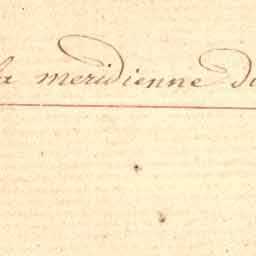 la meridienne du